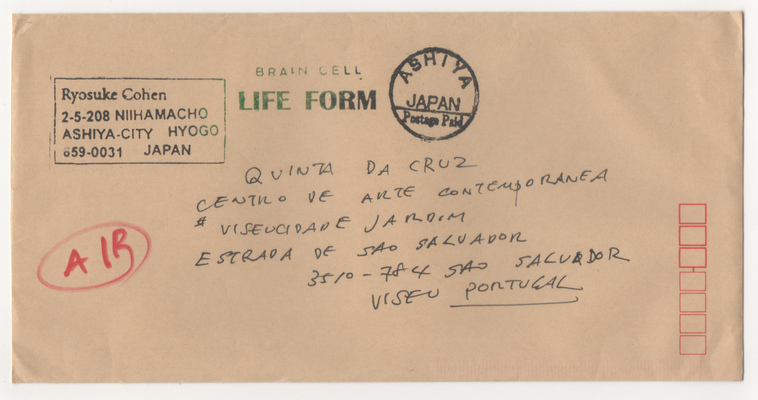 Ryosuke Cohen
2-5-208 NIIHAMACHO
ASHIYA-CITY HYOGO
659-0031 JAPAN
BRAIN CELL
LIFE FORM
ASHIYA
JAPAN
Postage Paid
QUINTA DA CRUZ
CENTRO DE ARTE CONTEMPORANEA
# VISEUCIDADE JARDIM
ESTRADA DE SAO SALVADOR
3510-784 SAO SALVADOR
VISEU PORTUGAL
AIR